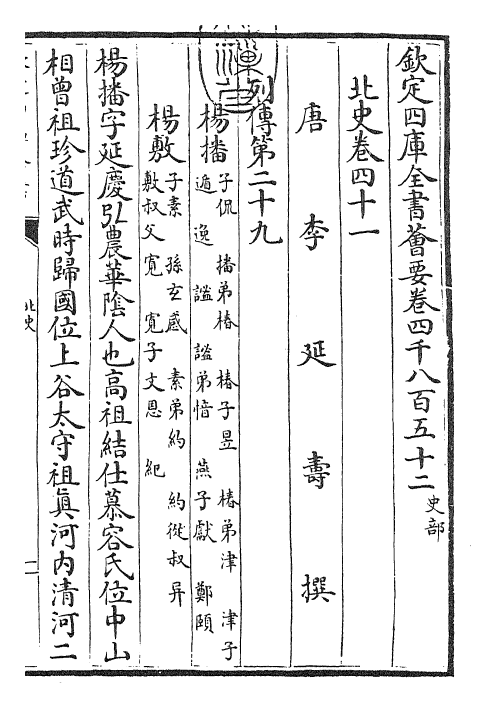 欽定四庫全書薈要卷四千八百五十二 史部
北史卷四十一
唐 李 延 壽 撰
列傳第二十九
楊播 子侃 播弟椿 椿子昱 椿弟津 津子
遁 逸 謐 謐弟愔 燕子獻 鄭頤
楊敷 子素 孫玄感 素弟約 約從叔异
敷叔父寛 寛子文恩 紀
楊播字延慶弘農華隂人也高祖結仕慕容氏位中山
相曾祖珍道武時歸國位上谷太守祖真河内清河二
北史